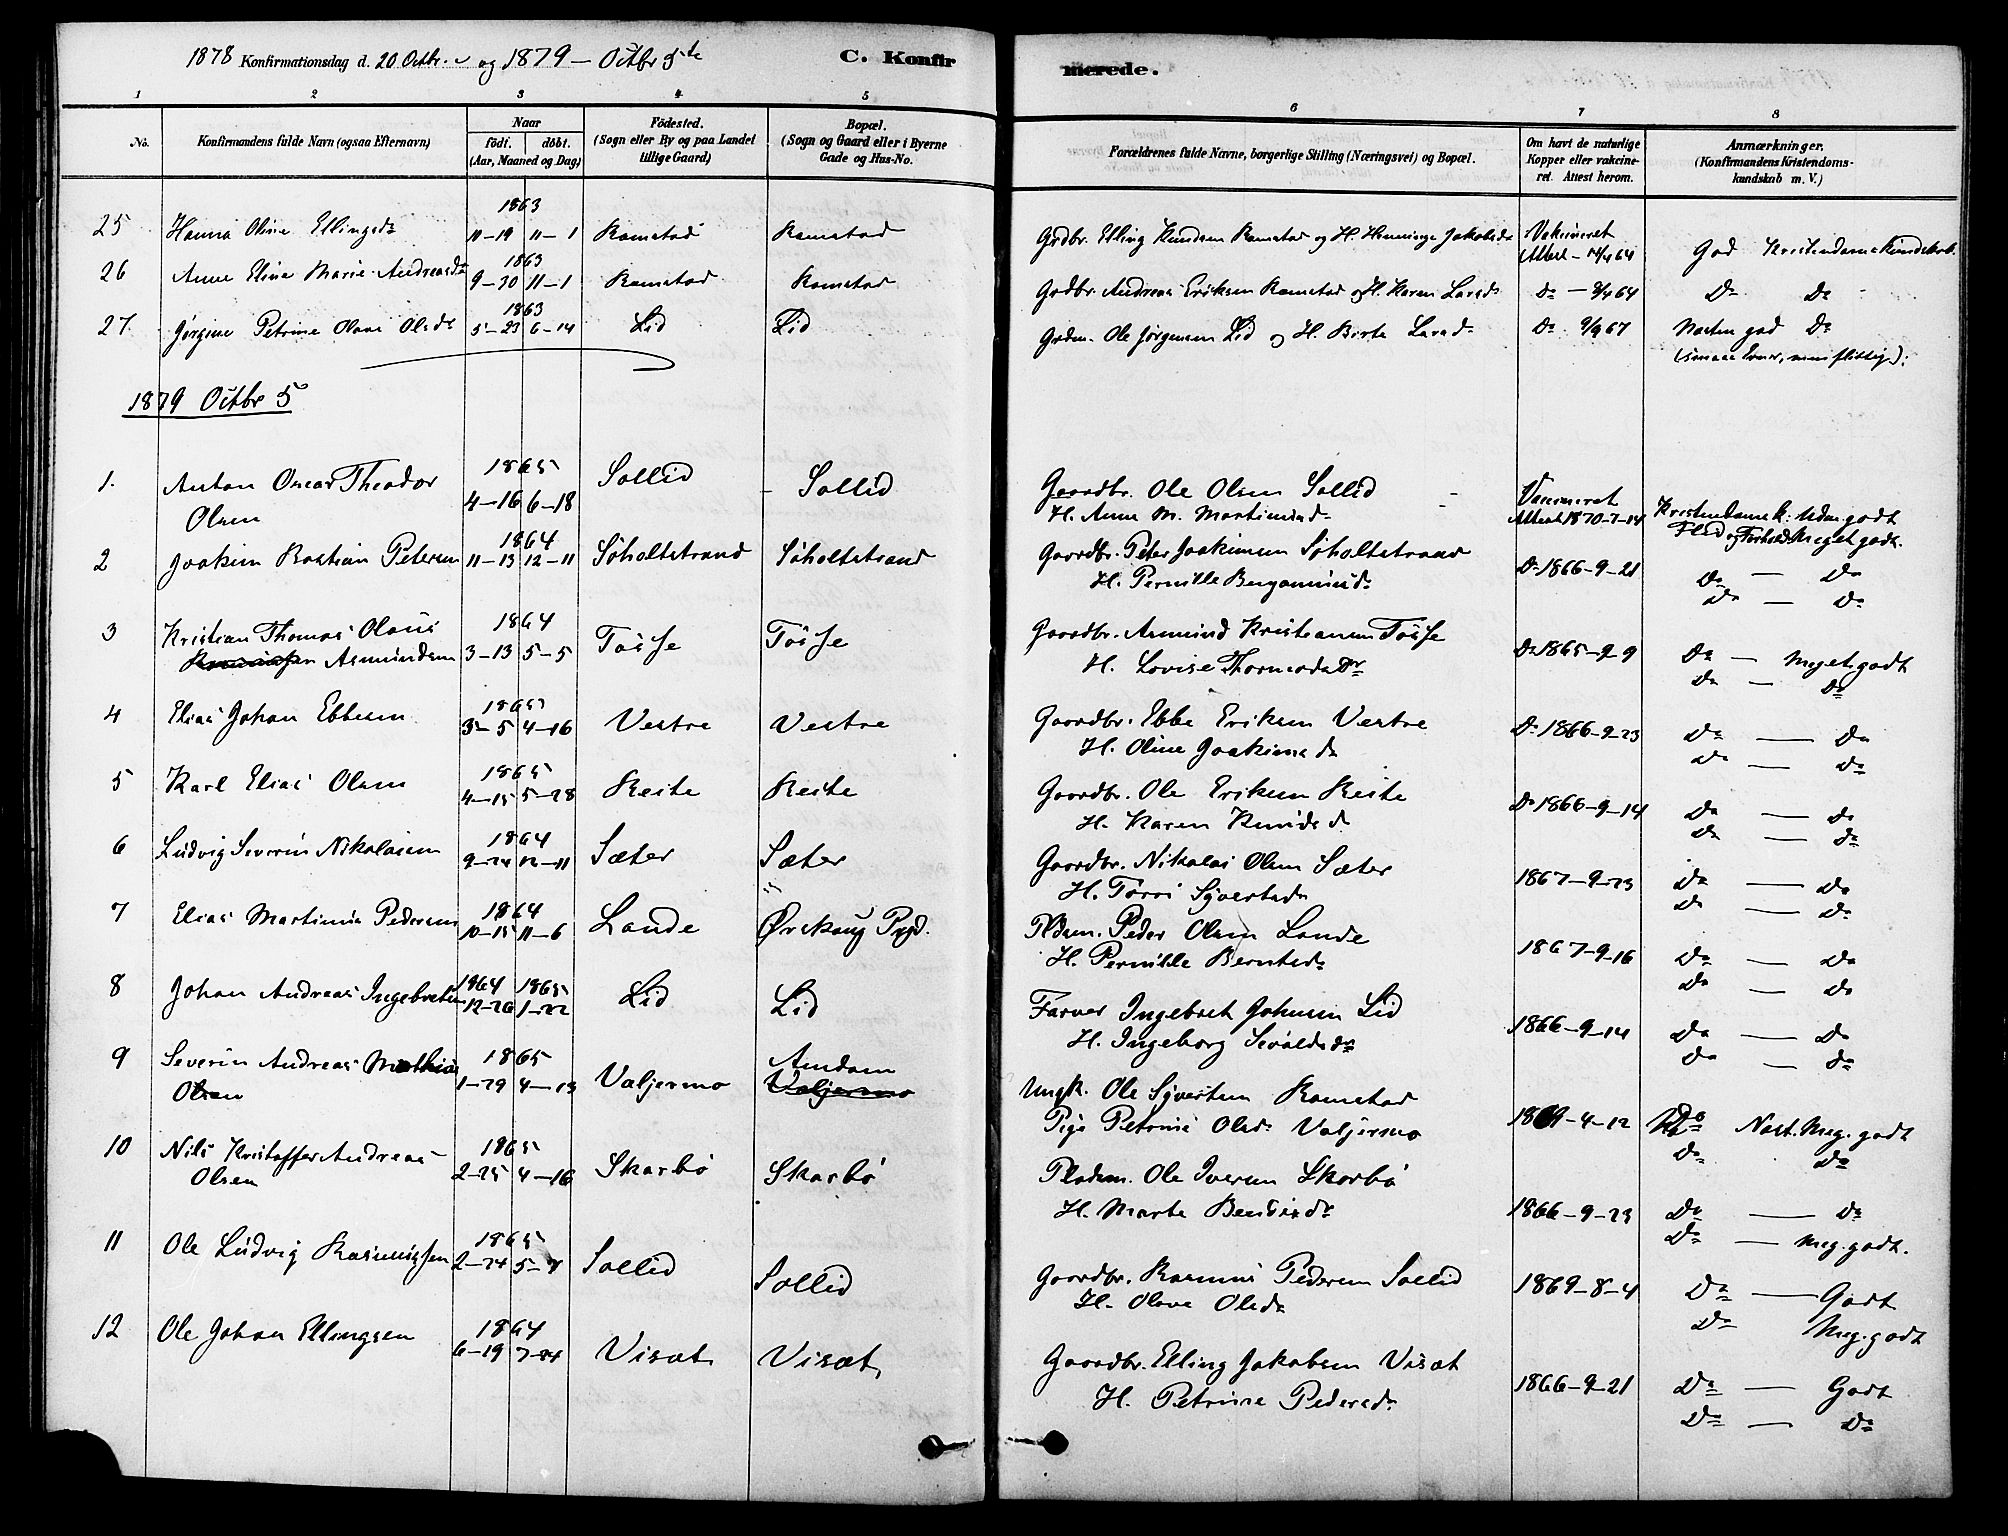 1878 Konfirmationsdag d. 20 Octbr. og 1879 – Octbr 5te
C. Konfirmerede.
1 2 3 4 5 6 7 8
No.
Konfirmandens fulde Navn (ogsaa Efternavn)
Naar
født. døbt.
(Aar, Maaned og Dag)
Fødested.
(Sogn eller By og paa Landet
tillige Gaard)
Bopæl.
(Sogn og Gaard eller i Byerne
Gade og Hus-No.
Forældrenes fulde Navne, borgerlige Stilling (Næringsvei) og Bopæl.
Om havt de naturlige
Kopper eller vakcine-
ret. Attest herom.
Anmærkninger.
(Konfirmandens Kristendoms-
kundskab m. V.)
1863
25 Hanna Oline Ellingsdr 11–19 11–1 Ramstad Ramstad Grdbr. Elling Knudsen Ramstad og H. Henninge Jakobsdr Vakcineret
Attest – 64 God Kristendomskundskab.
1863
26 Anne Elina Marie Andreasdr 9–30 11–1 Ramstad Ramstad Grdbr. Andreas Eriksen Ramstad og H. Karen Larsdr Do – 64 Do Do
1863
27. Jørgine Petrine Olava Olsdr 5–23 6–14 Lid Lid Grdm. Ole Jørgensen Lid og H. Birte Larsdr Do 9/9 67 Næsten god Do
(smaa Evner, men flittig).
1879 Octbr 5
1865
1. Anton Oscar Theodor 4–16 6–18 Sollid – Sollid Gaardbr. Ole Olsen Sollid Vaccineret
Olsen H. Anne M. Martinusdr Attest 1870–7–14 Kristendomsk: Udm. godt
Flid og Forhold Meget godt.
1864
2 Joakim Bastian Petersen 11–13 12–11 Søholtstrand Søholtstrand Gaardbr. Peter Joakimsen Søholtstrand Do 1866–9–21 Do — Do
H. Pernille Benjaminsdr Do — Do
1864
3 Kristian Thomas Olaus 3–13 5–5 Tøsse Tøsse Gaardbr. Asmund Kristiansen Tøsse Do 1865–9–9 Do — Meget godt
Asmundsen H. Lovise Thormodsdr Do — Do
1865
4 Elias Johan Ebbesen 3–5 4–16 Vestre Vestre Gaardbr. Ebbe Eriksen Vestre Do 1866–9–23 Do — Do
H. Oline Joakimsdr Do — Do
1865
5 Karl Elias Olsen 4–15 5–28 Reite Reite Gaardbr. Ole Eriksen Reite Do 1866–9–14 Do — Do
H. Karen Knudsdr Do — Do
1864
6 Ludvig Severin Nikolaisen 9–24 12–11 Sæter Sæter Gaardbr. Nikolai Olsen Sæter 1867–9–23 Do — Do
H. Syvertsdr Do — Do
1864
7 Elias Martinus Pedersen 10–15 11–6 Lande Ørskoug Pgd. Pldsm. Peder Olsen Lande 1867–9–16 Do — Do
H. Pernille Berntsdr Do — Do
1864 1865
8 Johan Andreas Ingebretsen 12–26 1–22 Lid Lid Farver Ingebret Johnsen Lid 1866–9–14 Do — Do
H. Ingeborg Sivaldsdr Do — Do
1865
9 Severin Andreas Mathias 1–29 4–13 Valjermo Amdam Ungk. Ole Syvertsen Ramstad 1869–4–12 Do Næst. Meg. godt
Olsen Valjermo Pige Petrine Olsdr Valjermo Do Do
1865
10 Nils Kristoffer Andreas 2–25 4–16 Skarbø Skarbø Pladsm. Ole Iversen Skarbø 1866–9–23 Do — Do
Olsen H. Marte Do — Meg. godt.
1865
11 Ole Ludvig Rasmussen 2–24 5–7 Sollid Sollid Gaardbr. Rasmus Pedersen Sollid 1869–8–4 Do — Godt
H. Olave Olsdr Do Meg. godt
1864
12 Ole Johan Ellingsen 6–19 7–24 Visæt Visæt Gaardbr. Elling Jakobsen Visæt 1866–9–21 Do — Godt
H. Petrine Pedersdr Do — Do